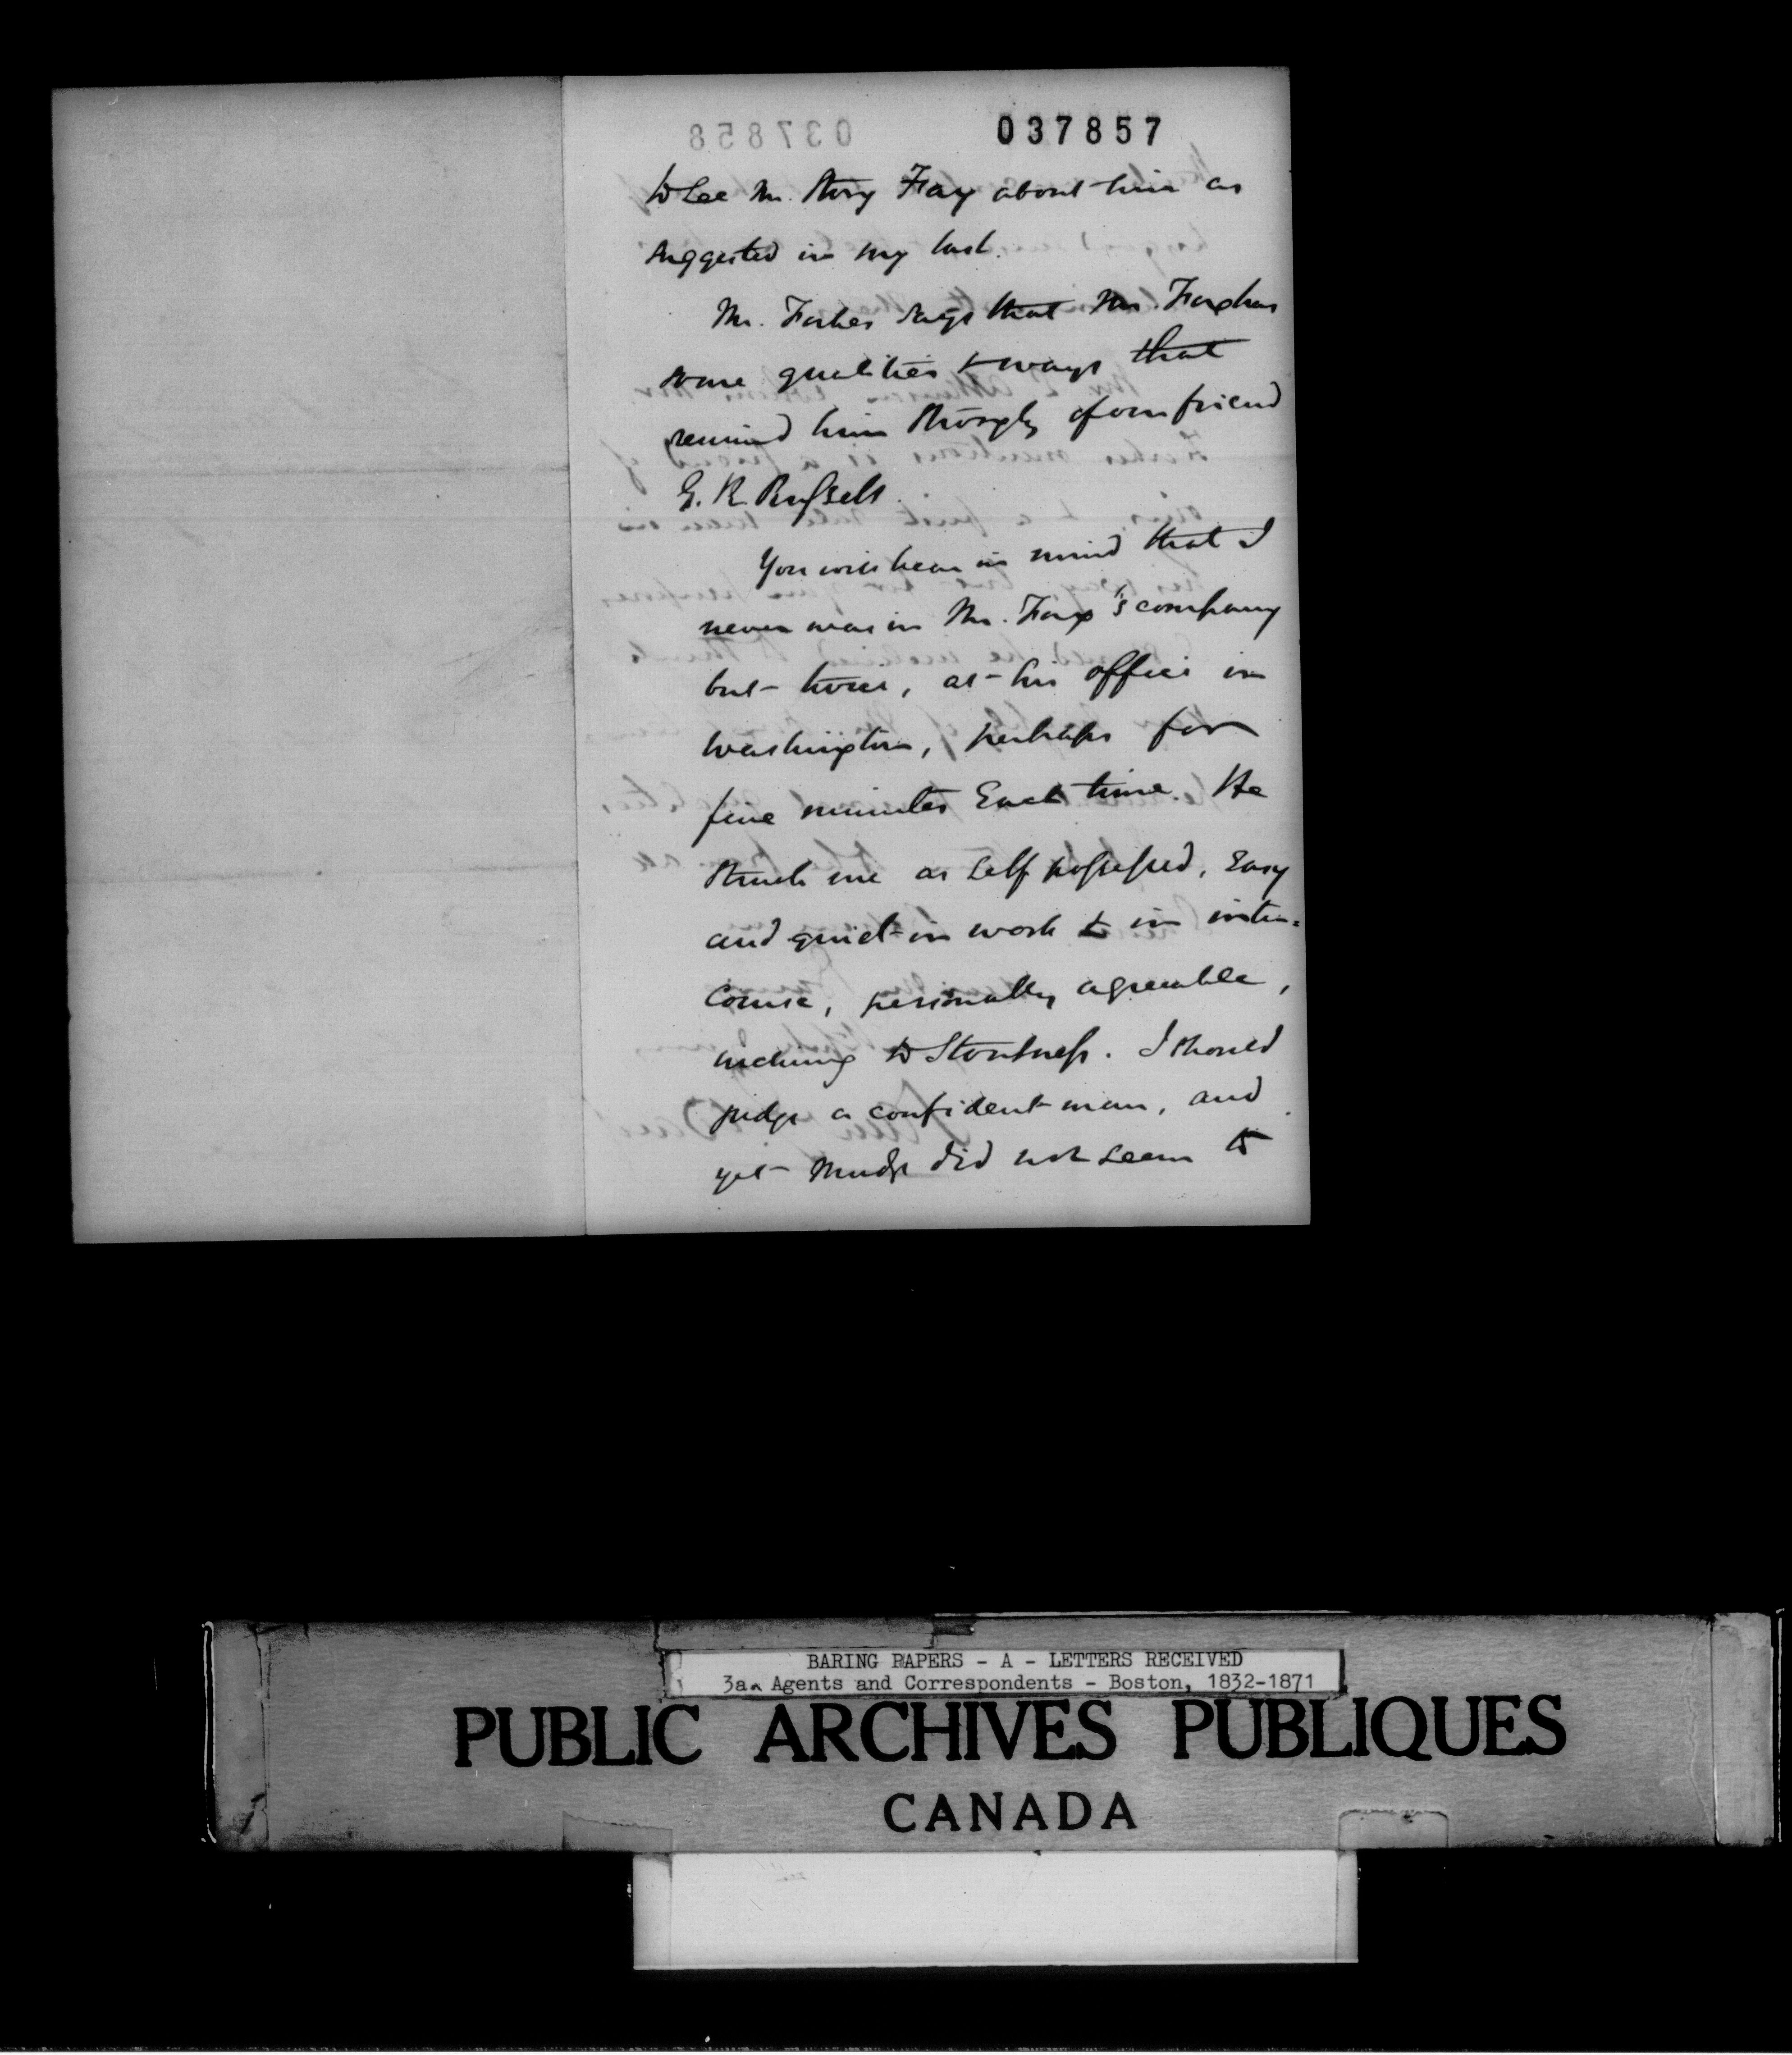 037857
to see Mr. Story Fay about him as
suggested in my last.
Mr. Forbes says that Mr. Fox has
some qualities & ways that
remind him strongly of our friend
G. R. Russell.
You will bear in mind that I
never was in Mr. Fox's company
but twice, at his office in
Washington, perhaps for
five minutes Each time. He
struck me as self possessed, Easy
and quiet in work & in inter=
course, personally agreeable,
inclining to Stoutness. I should
judge a confident man, and
yet did not seem to
BARING PAPERS - A - LETTERS RECEIVED
3a. Agents and Correspondents - Boston, 1832-1871
PUBLIC ARCHIVES PUBLIQUES
CANADA